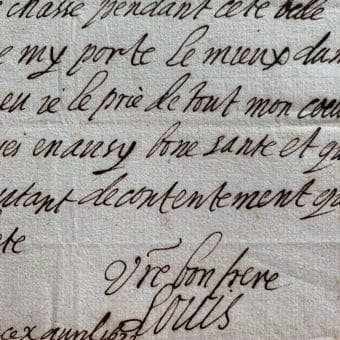 chasse pendant cete belle
e my porte le mieux du
ieu ie le prie de tout mon coeu
en aussy bone sante et qu
utant de contentement qu
ete
Vre bon frere
LOUIS
avril